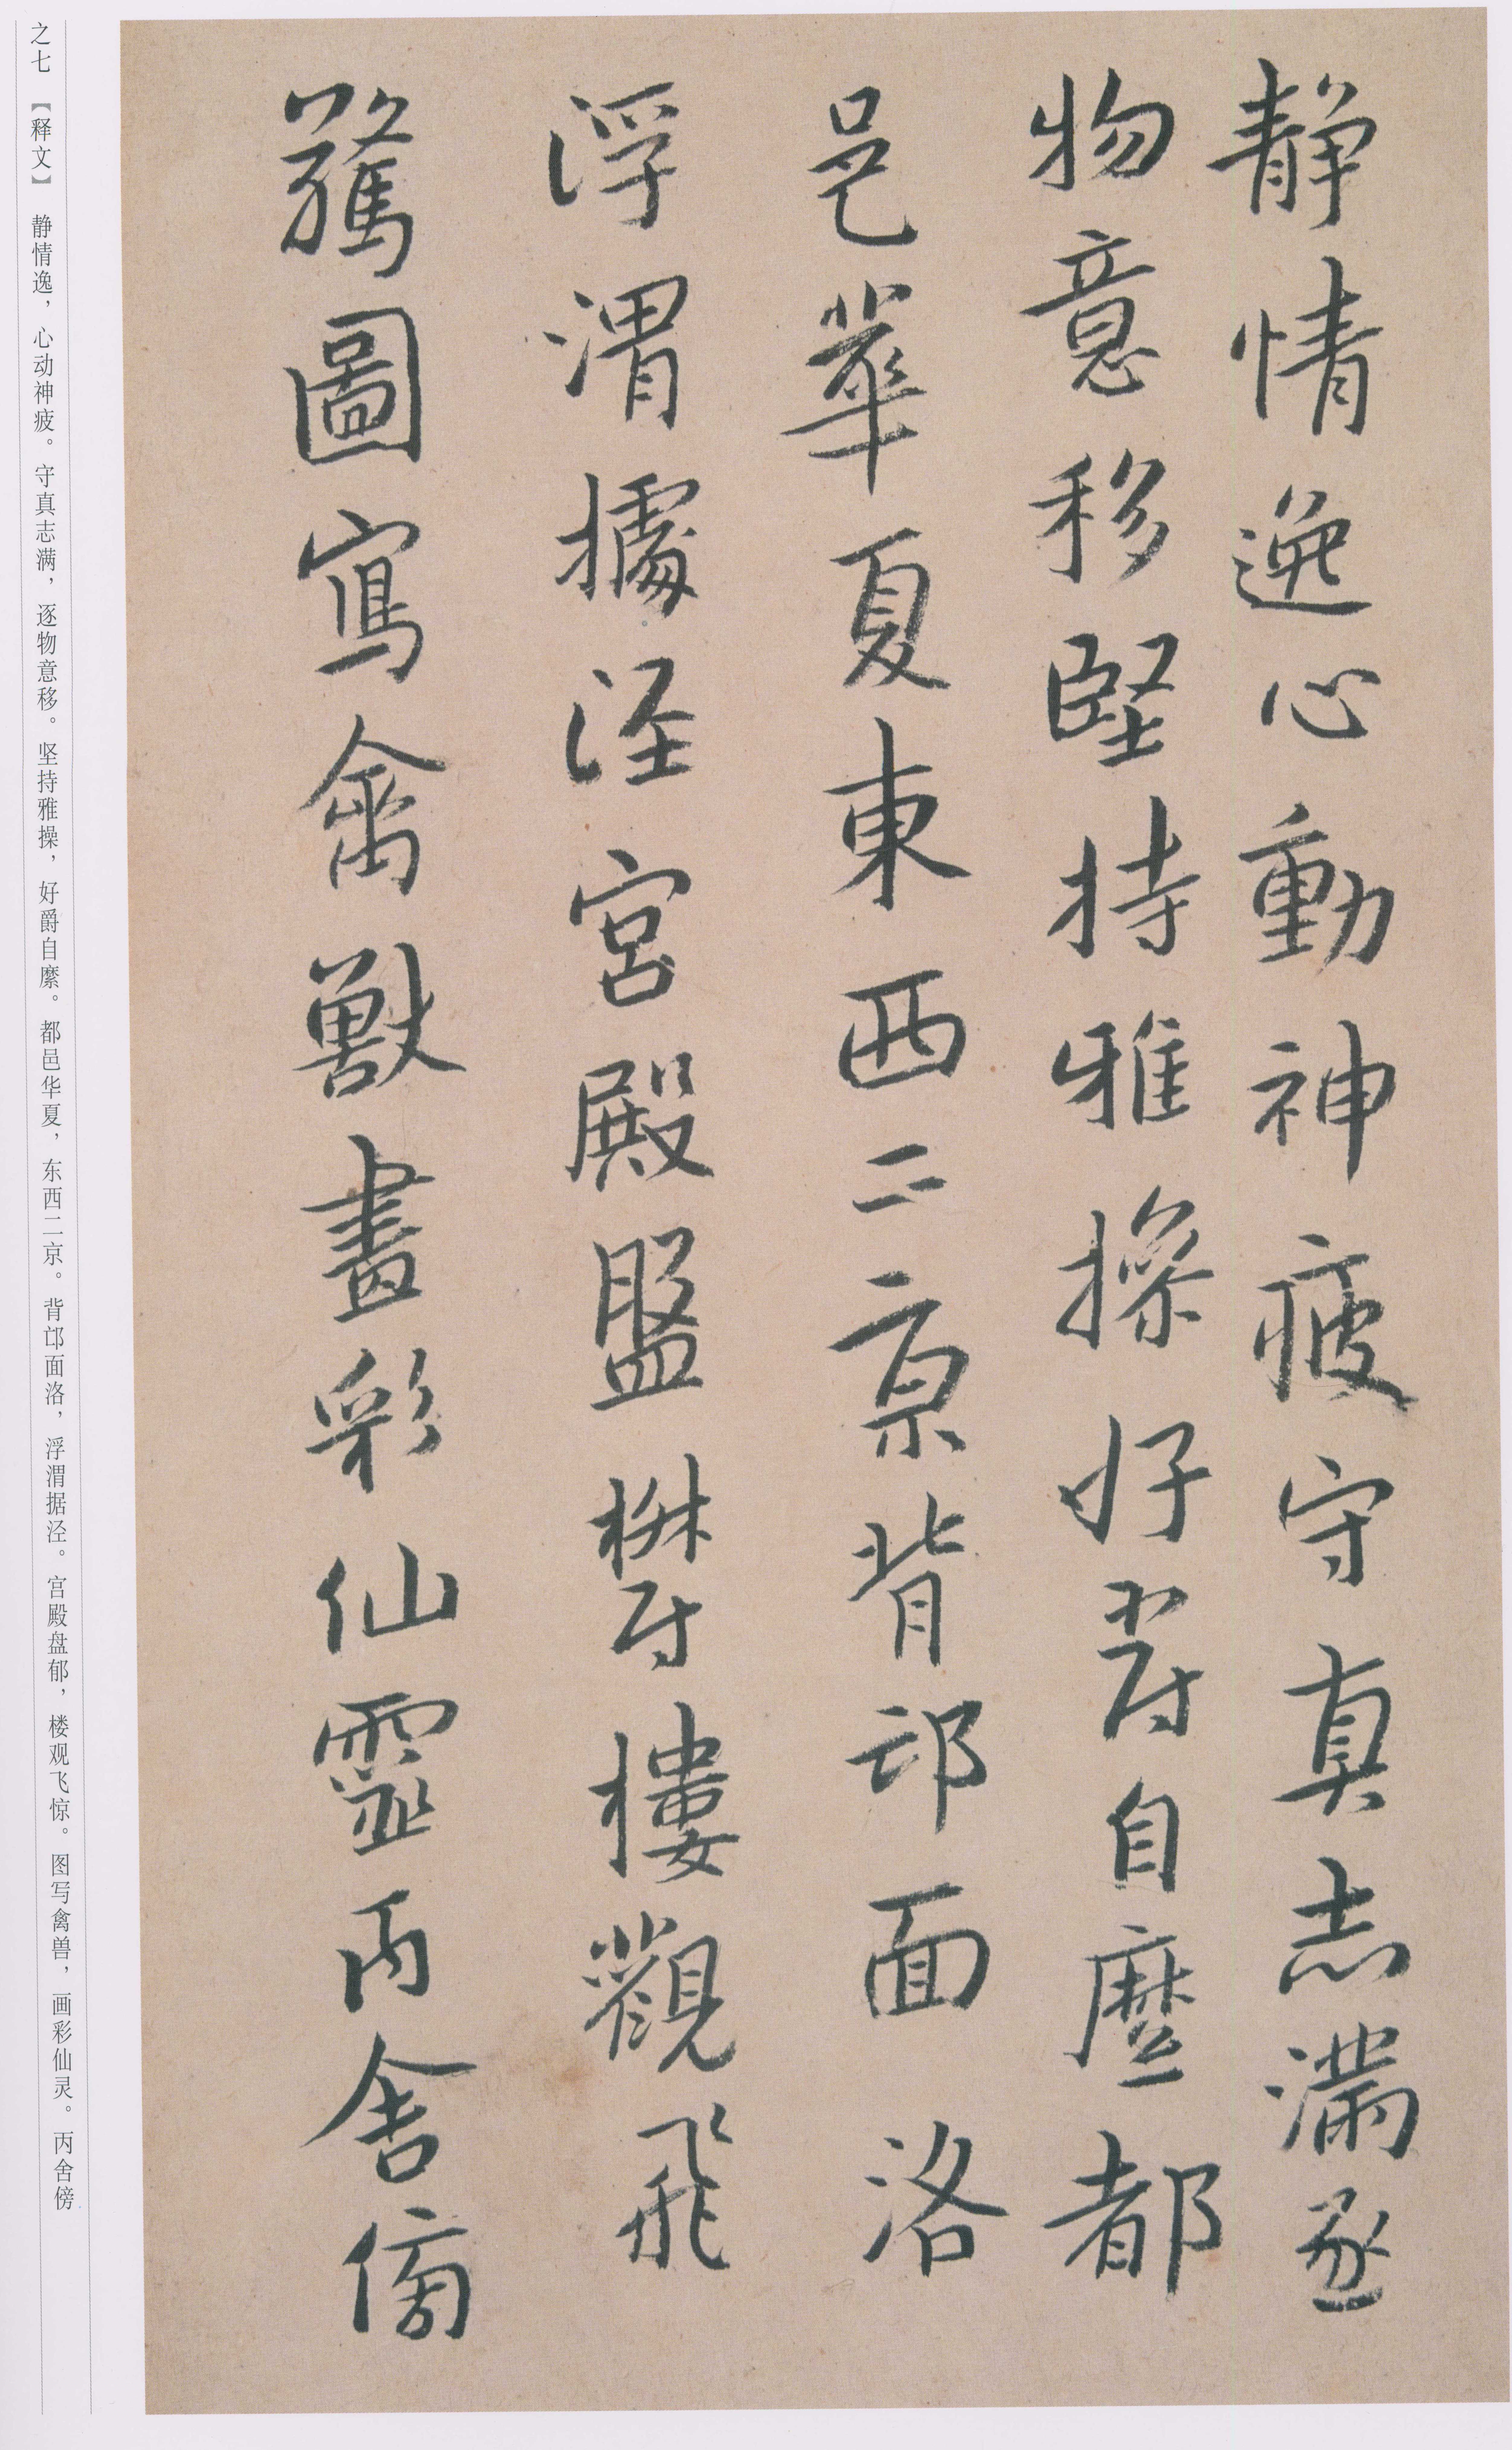 静情逸心動神疲守真志滿逐
物意移堅持雅操好爵自縻都
邑華夏東西二京背邙面洛
浮渭據涇宮殿盤欝樓觀飛
驚圖寫禽獸畫彩仙靈丙舍傍
之七 【释文】 静情逸，心动神疲。守真志满，逐物意移。坚持雅操，好爵自縻。都邑华夏，东西二京。背邙面洛，浮渭据泾。宫殿盘郁，楼观飞惊。图写禽兽，画彩仙灵。丙舍傍